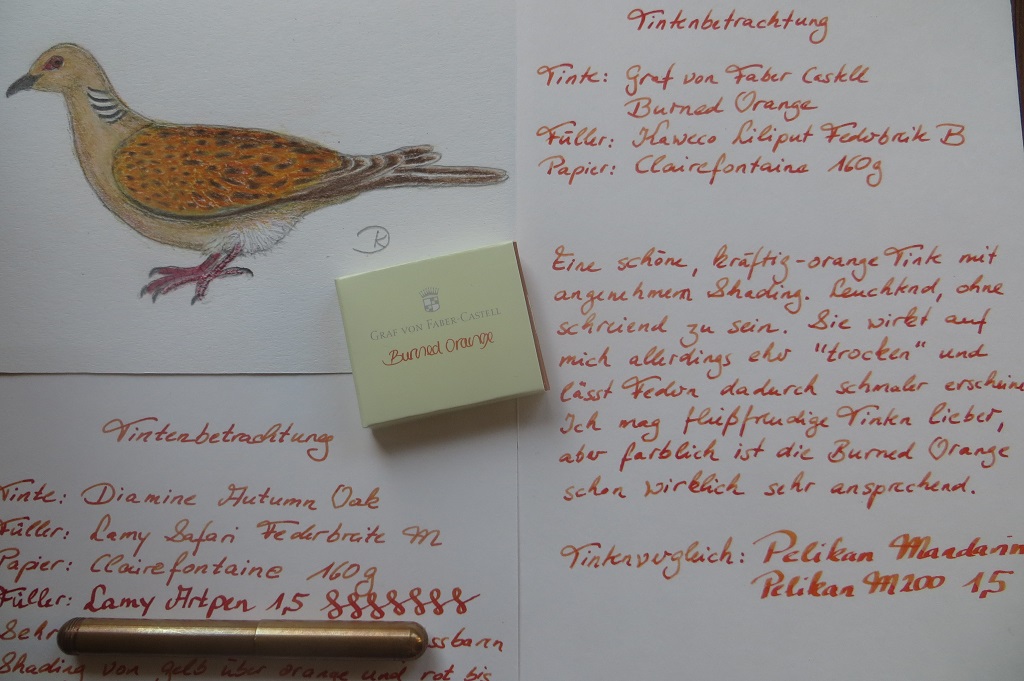 Tintenbetrachtung
Tinte: Graf von Faber Castell
Burned Orange
Füller: Kaweco Liliput Federbreite B
Papier: Clairefontaine 160g
Eine schöne, kräftig-orange Tinte mit
angenehmem Shading. Leuchtend, ohne
schreiend zu sein. Sie wirkt auf
mich allerdings eher "trocken" und
lässt Federn dadurch schmaler erscheine
Ich mag fließfreudige Tinten lieber,
aber farblich ist die Burned Orange
schon wirklich sehr ansprechend.
Tintenvergleich: Pelikan Mandarin
Pelikan M200 1,5
GRAF VON FABER-CASTELL
Burned Orange
Tintenbetrachtung
Tinte: Diamine Autumn Oak
Füller: Lamy Safari Federbreite M
Papier: Clairefontaine 160g
Füller: Lamy Artpen 1,5
Sehr ssbarem
Shading von gelb über orange und rot bis